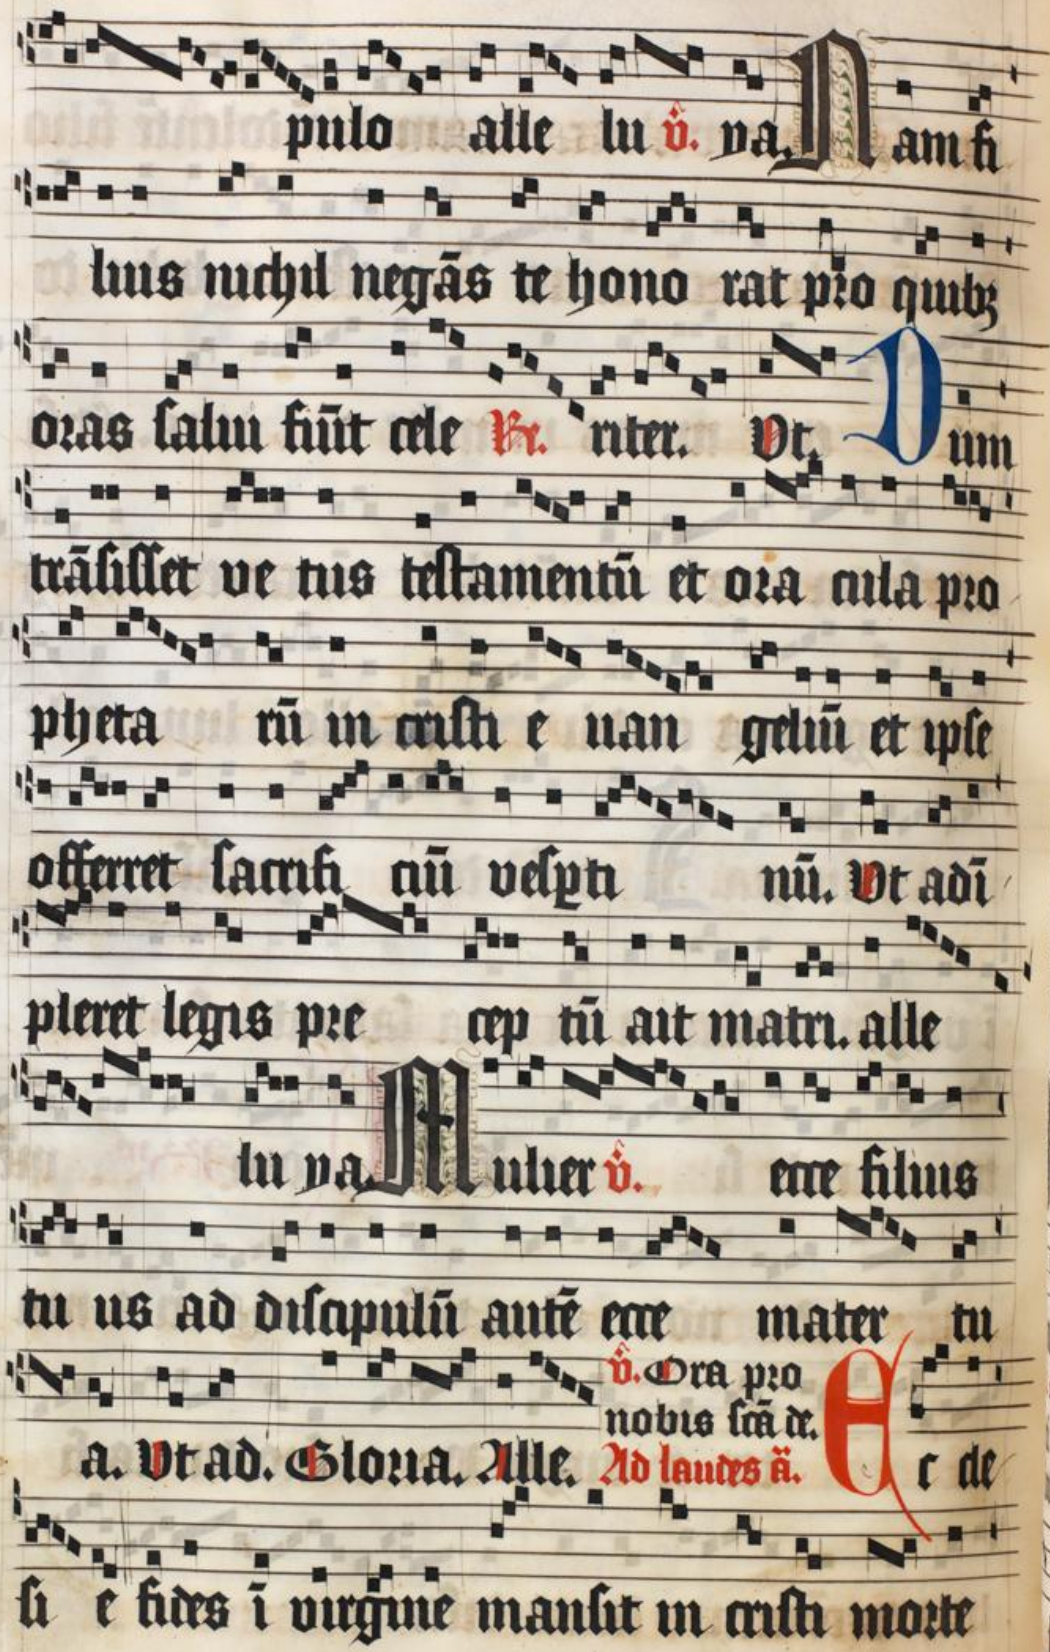 pulo alle lu v̂. ya. Nam fi
lius nichil negās te hono rat pro quibꝫ
oras salui fiūt cele ℟. riter. Vt. Dum
trāsisset ve tus testamentū et ora cula pro
pheta rū in cristi e uan geliū et ipse
offerret sacrifi ciū vesꝑti nū. Vt adī
pleret legis pre cep tū ait matri. alle
lu ya. Mulier v̂. ecce filius
tu us ad discipulū autē ecce mater tu
v̂. Ora pro
nobis scā de.
a. Vt ad. Gloria. Alle. Ad laudes ā. Ec cle
si e fides ī virgine mansit in cristi morte